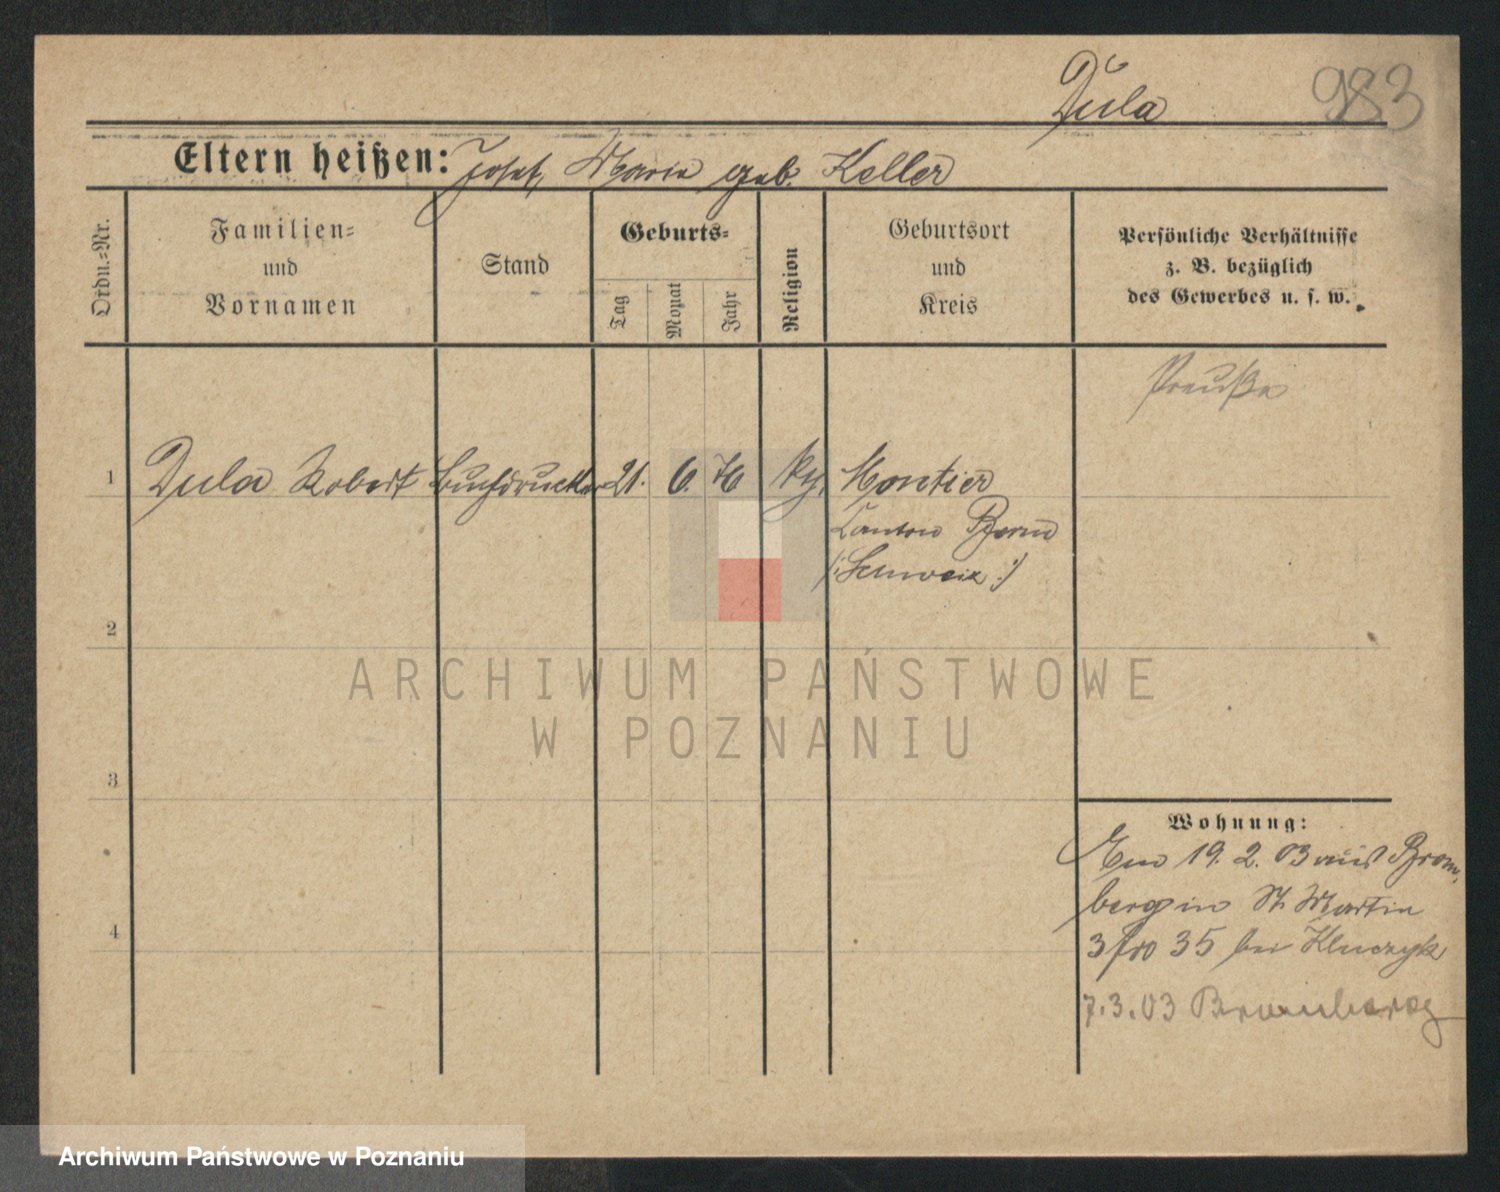 Dula
983
Eltern heißen: Josef, Maria geb. Keller
Ordn.=Nr.
Familien=
und
Vornamen
Stand
Geburts=
Tag
Monat
Jahr
Religion
Geburtsort
und
Kreis
Persönliche Verhältnisse
z. B. bezüglich
des Gewerbes u. s. w.
Preuße
1 Dula Robert Buchdrucker 21. 6. Moutier
Canton Bern
/: Schweiz :/
2
3
4
Wohnung:
19. 2. 03 aus Brom-
berg in St. Martin
35 bei Kluczyk
7.3.03 Bromberg
ARCHIWUM PAŃSTWOWE
W POZNANIU
Archiwum Państwowe w Poznaniu